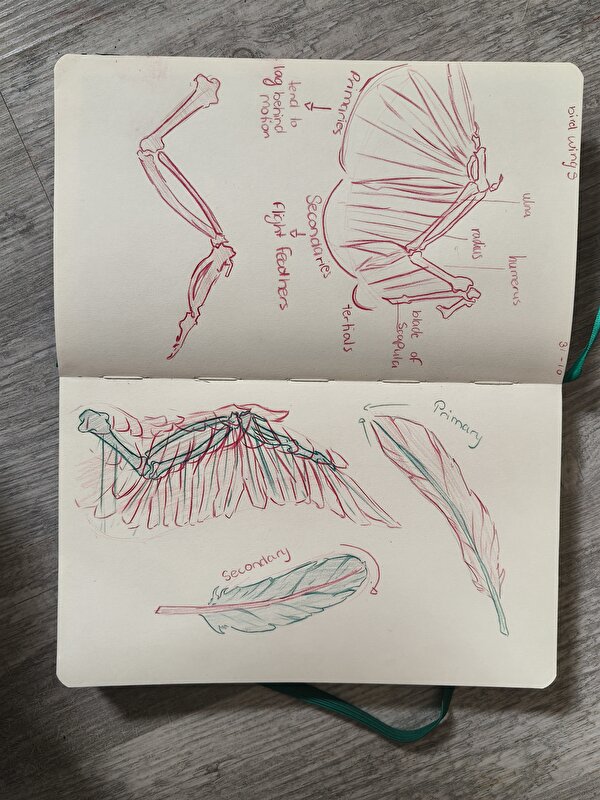 bird wings
31-10
Primaries
tend to
lag behind
motion
Secondaries
flight feathers
tertials
ulna
radius
humerus
blade of
scapula
Primary
Secondary